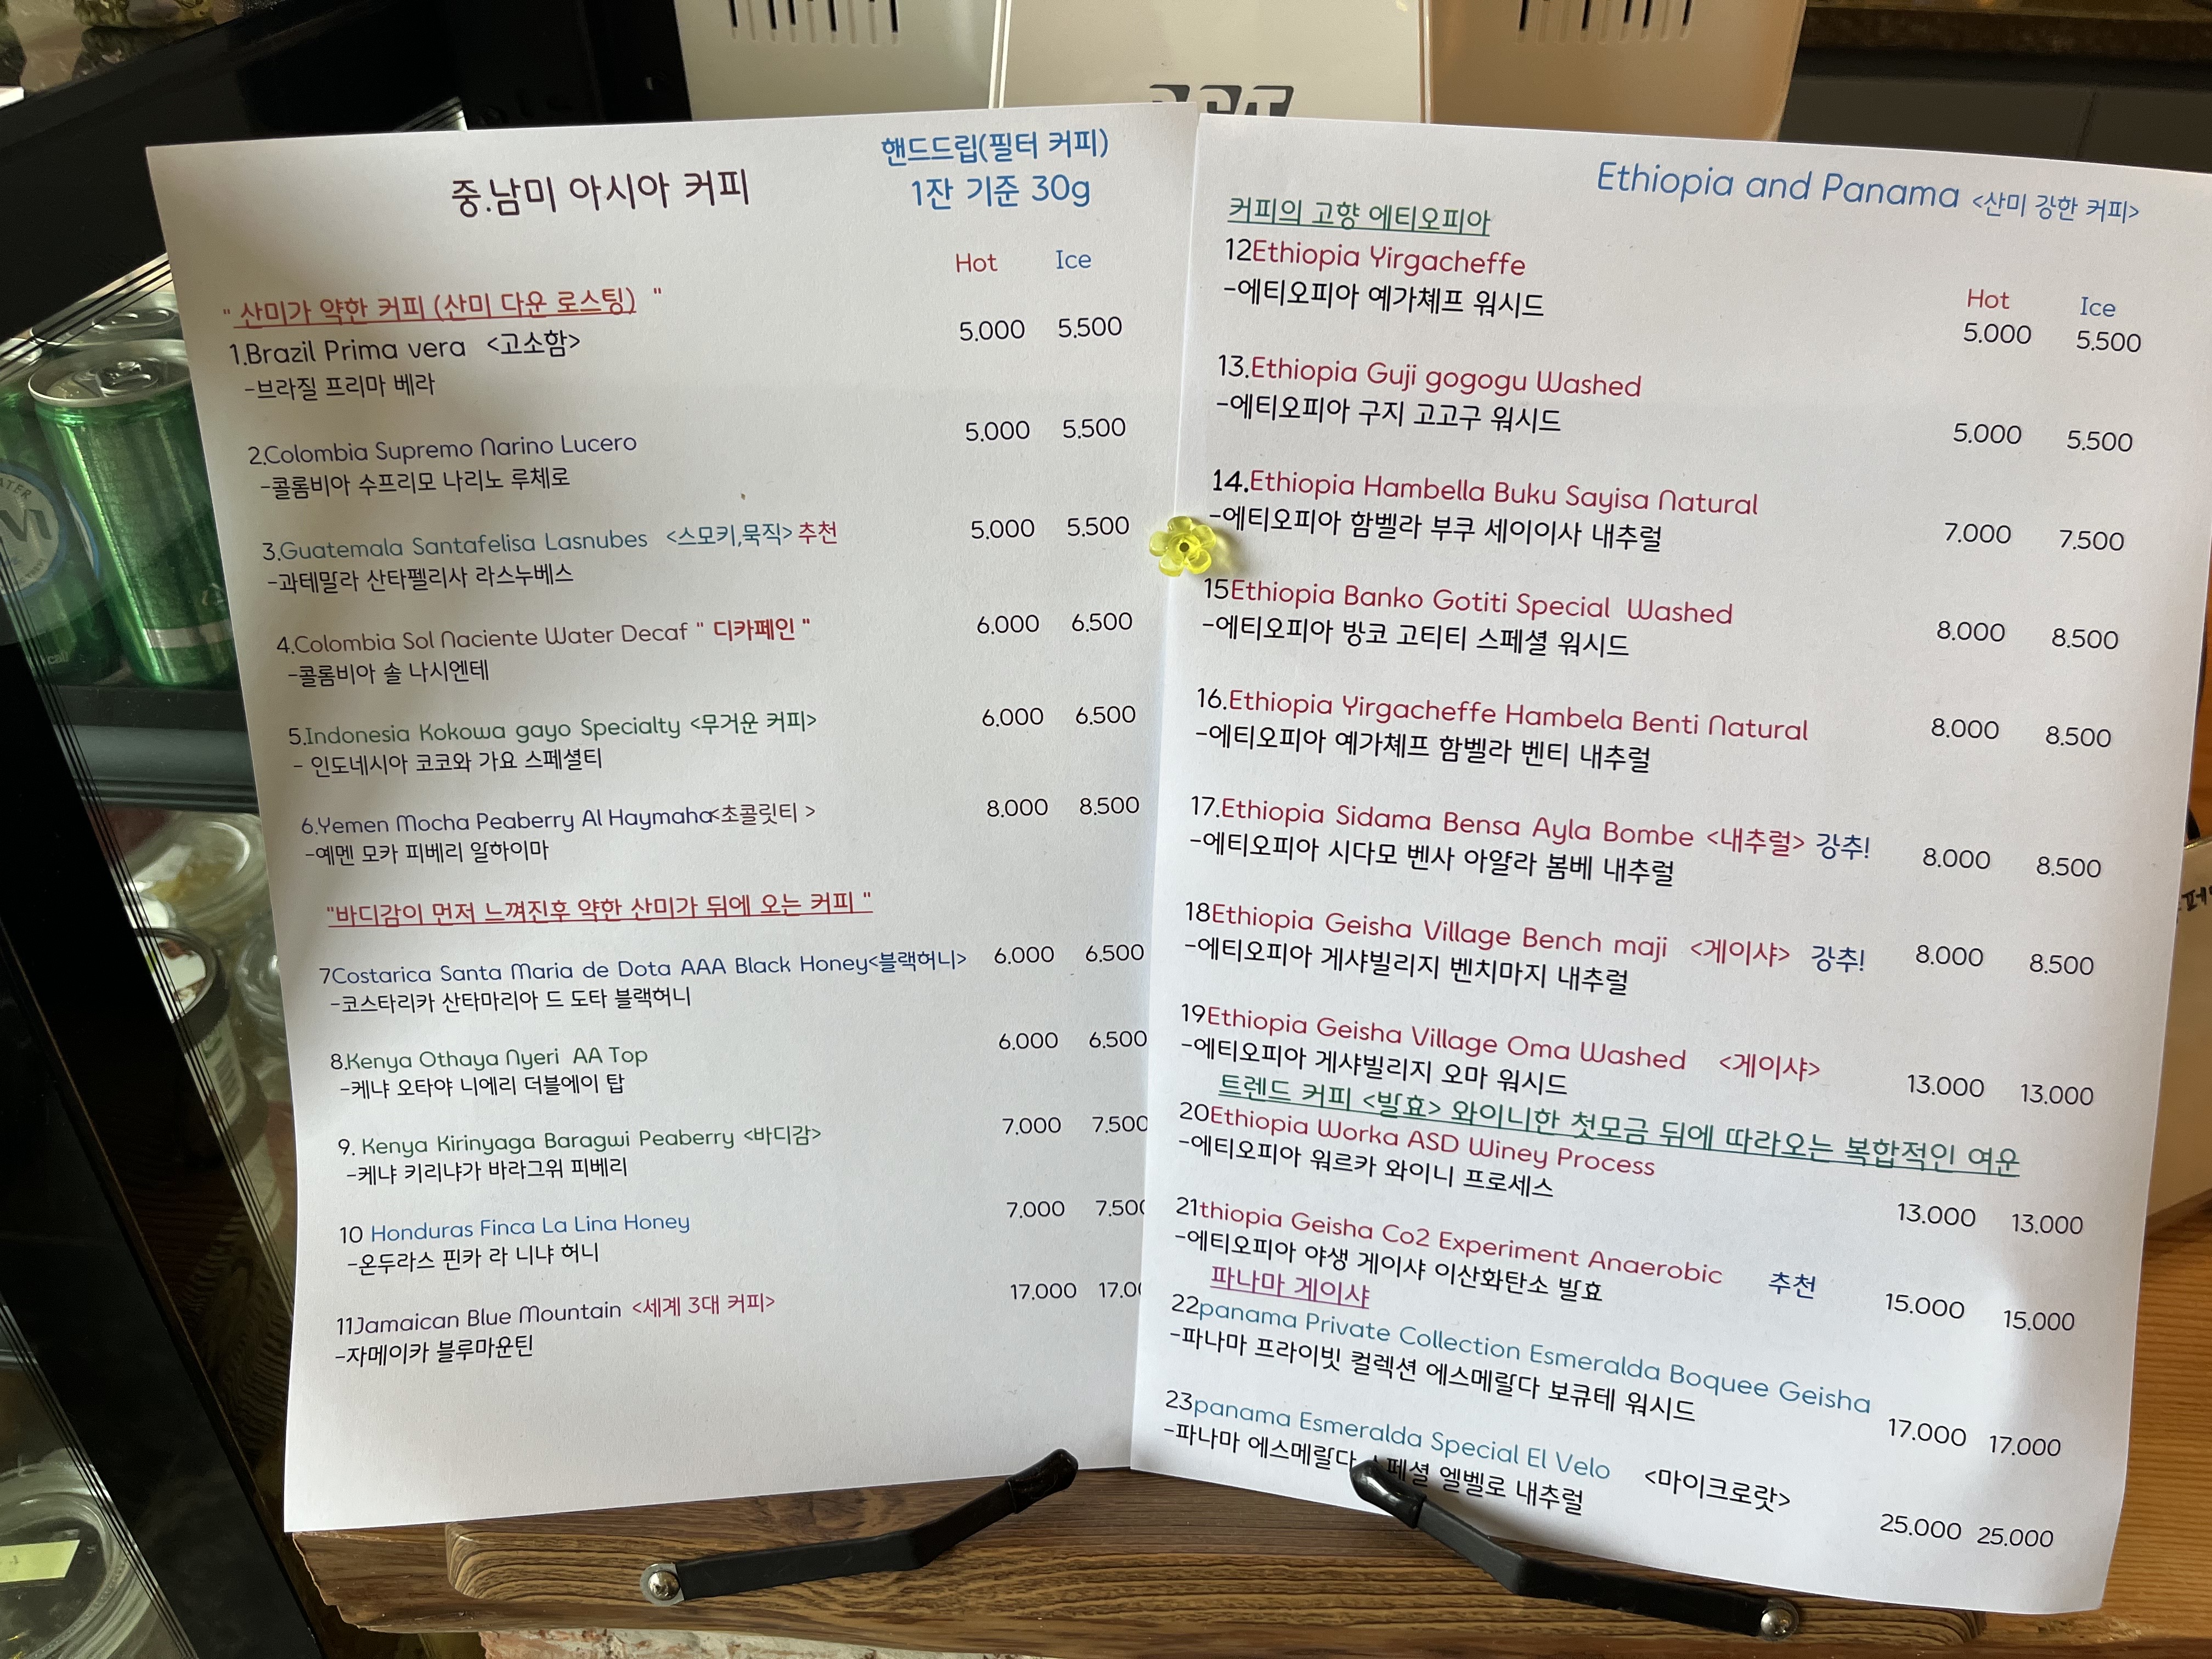 중.남미 아시아 커피
핸드드립(필터 커피)
1잔 기준 30g
Hot Ice
" 산미가 약한 커피 (산미 다운 로스팅) "
1.Brazil Prima vera <고소함> 5.000 5.500
-브라질 프리마 베라
2.Colombia Supremo Narino Lucero 5.000 5.500
-콜롬비아 수프리모 나리노 루체로
3.Guatemala Santafelisa Lasnubes <스모키,묵직> 추천 5.000 5.500
-과테말라 산타펠리사 라스누베스
4.Colombia Sol Naciente Water Decaf " 디카페인 " 6.000 6.500
-콜롬비아 솔 나시엔테
5.Indonesia Kokowa gayo Specialty <무거운 커피> 6.000 6.500
- 인도네시아 코코와 가요 스페셜티
6.Yemen Mocha Peaberry Al Haymaha<초콜릿티 > 8.000 8.500
-예멘 모카 피베리 알하이마
"바디감이 먼저 느껴진후 약한 산미가 뒤에 오는 커피 "
7Costarica Santa Maria de Dota AAA Black Honey<블랙허니> 6.000 6.500
-코스타리카 산타마리아 드 도타 블랙허니
8.Kenya Othaya Nyeri AA Top 6.000 6.500
-케냐 오타야 니에리 더블에이 탑
9. Kenya Kirinyaga Baragwi Peaberry <바디감> 7.000 7.500
-케냐 키리냐가 바라그위 피베리
10 Honduras Finca La Lina Honey 7.000 7.500
-온두라스 핀카 라 니냐 허니
11Jamaican Blue Mountain <세계 3대 커피> 17.000 17.00
-자메이카 블루마운틴
Ethiopia and Panama <산미 강한 커피>
커피의 고향 에티오피아
Hot Ice
12Ethiopia Yirgacheffe 5.000 5.500
-에티오피아 예가체프 워시드
13.Ethiopia Guji gogogu Washed 5.000 5.500
-에티오피아 구지 고고구 워시드
14.Ethiopia Hambella Buku Sayisa Natural 7.000 7.500
-에티오피아 함벨라 부쿠 세이이사 내추럴
15Ethiopia Banko Gotiti Special Washed 8.000 8.500
-에티오피아 방코 고티티 스페셜 워시드
16.Ethiopia Yirgacheffe Hambela Benti Natural 8.000 8.500
-에티오피아 예가체프 함벨라 벤티 내추럴
17.Ethiopia Sidama Bensa Ayla Bombe <내추럴> 강추! 8.000 8.500
-에티오피아 시다모 벤사 아얄라 봄베 내추럴
18Ethiopia Geisha Village Bench maji <게이샤> 강추! 8.000 8.500
-에티오피아 게샤빌리지 벤치마지 내추럴
19Ethiopia Geisha Village Oma Washed <게이샤> 13.000 13.000
-에티오피아 게샤빌리지 오마 워시드
트렌드 커피 <발효> 와이니한 첫모금 뒤에 따라오는 복합적인 여운
20Ethiopia Worka ASD Winey Process 13.000 13.000
-에티오피아 워르카 와이니 프로세스
21thiopia Geisha Co2 Experiment Anaerobic 추천 15.000 15.000
-에티오피아 야생 게이샤 이산화탄소 발효
파나마 게이샤
22panama Private Collection Esmeralda Boquee Geisha 17.000 17.000
-파나마 프라이빗 컬렉션 에스메랄다 보큐테 워시드
23panama Esmeralda Special El Velo <마이크로랏> 25.000 25.000
-파나마 에스메랄다 페셜 엘벨로 내추럴